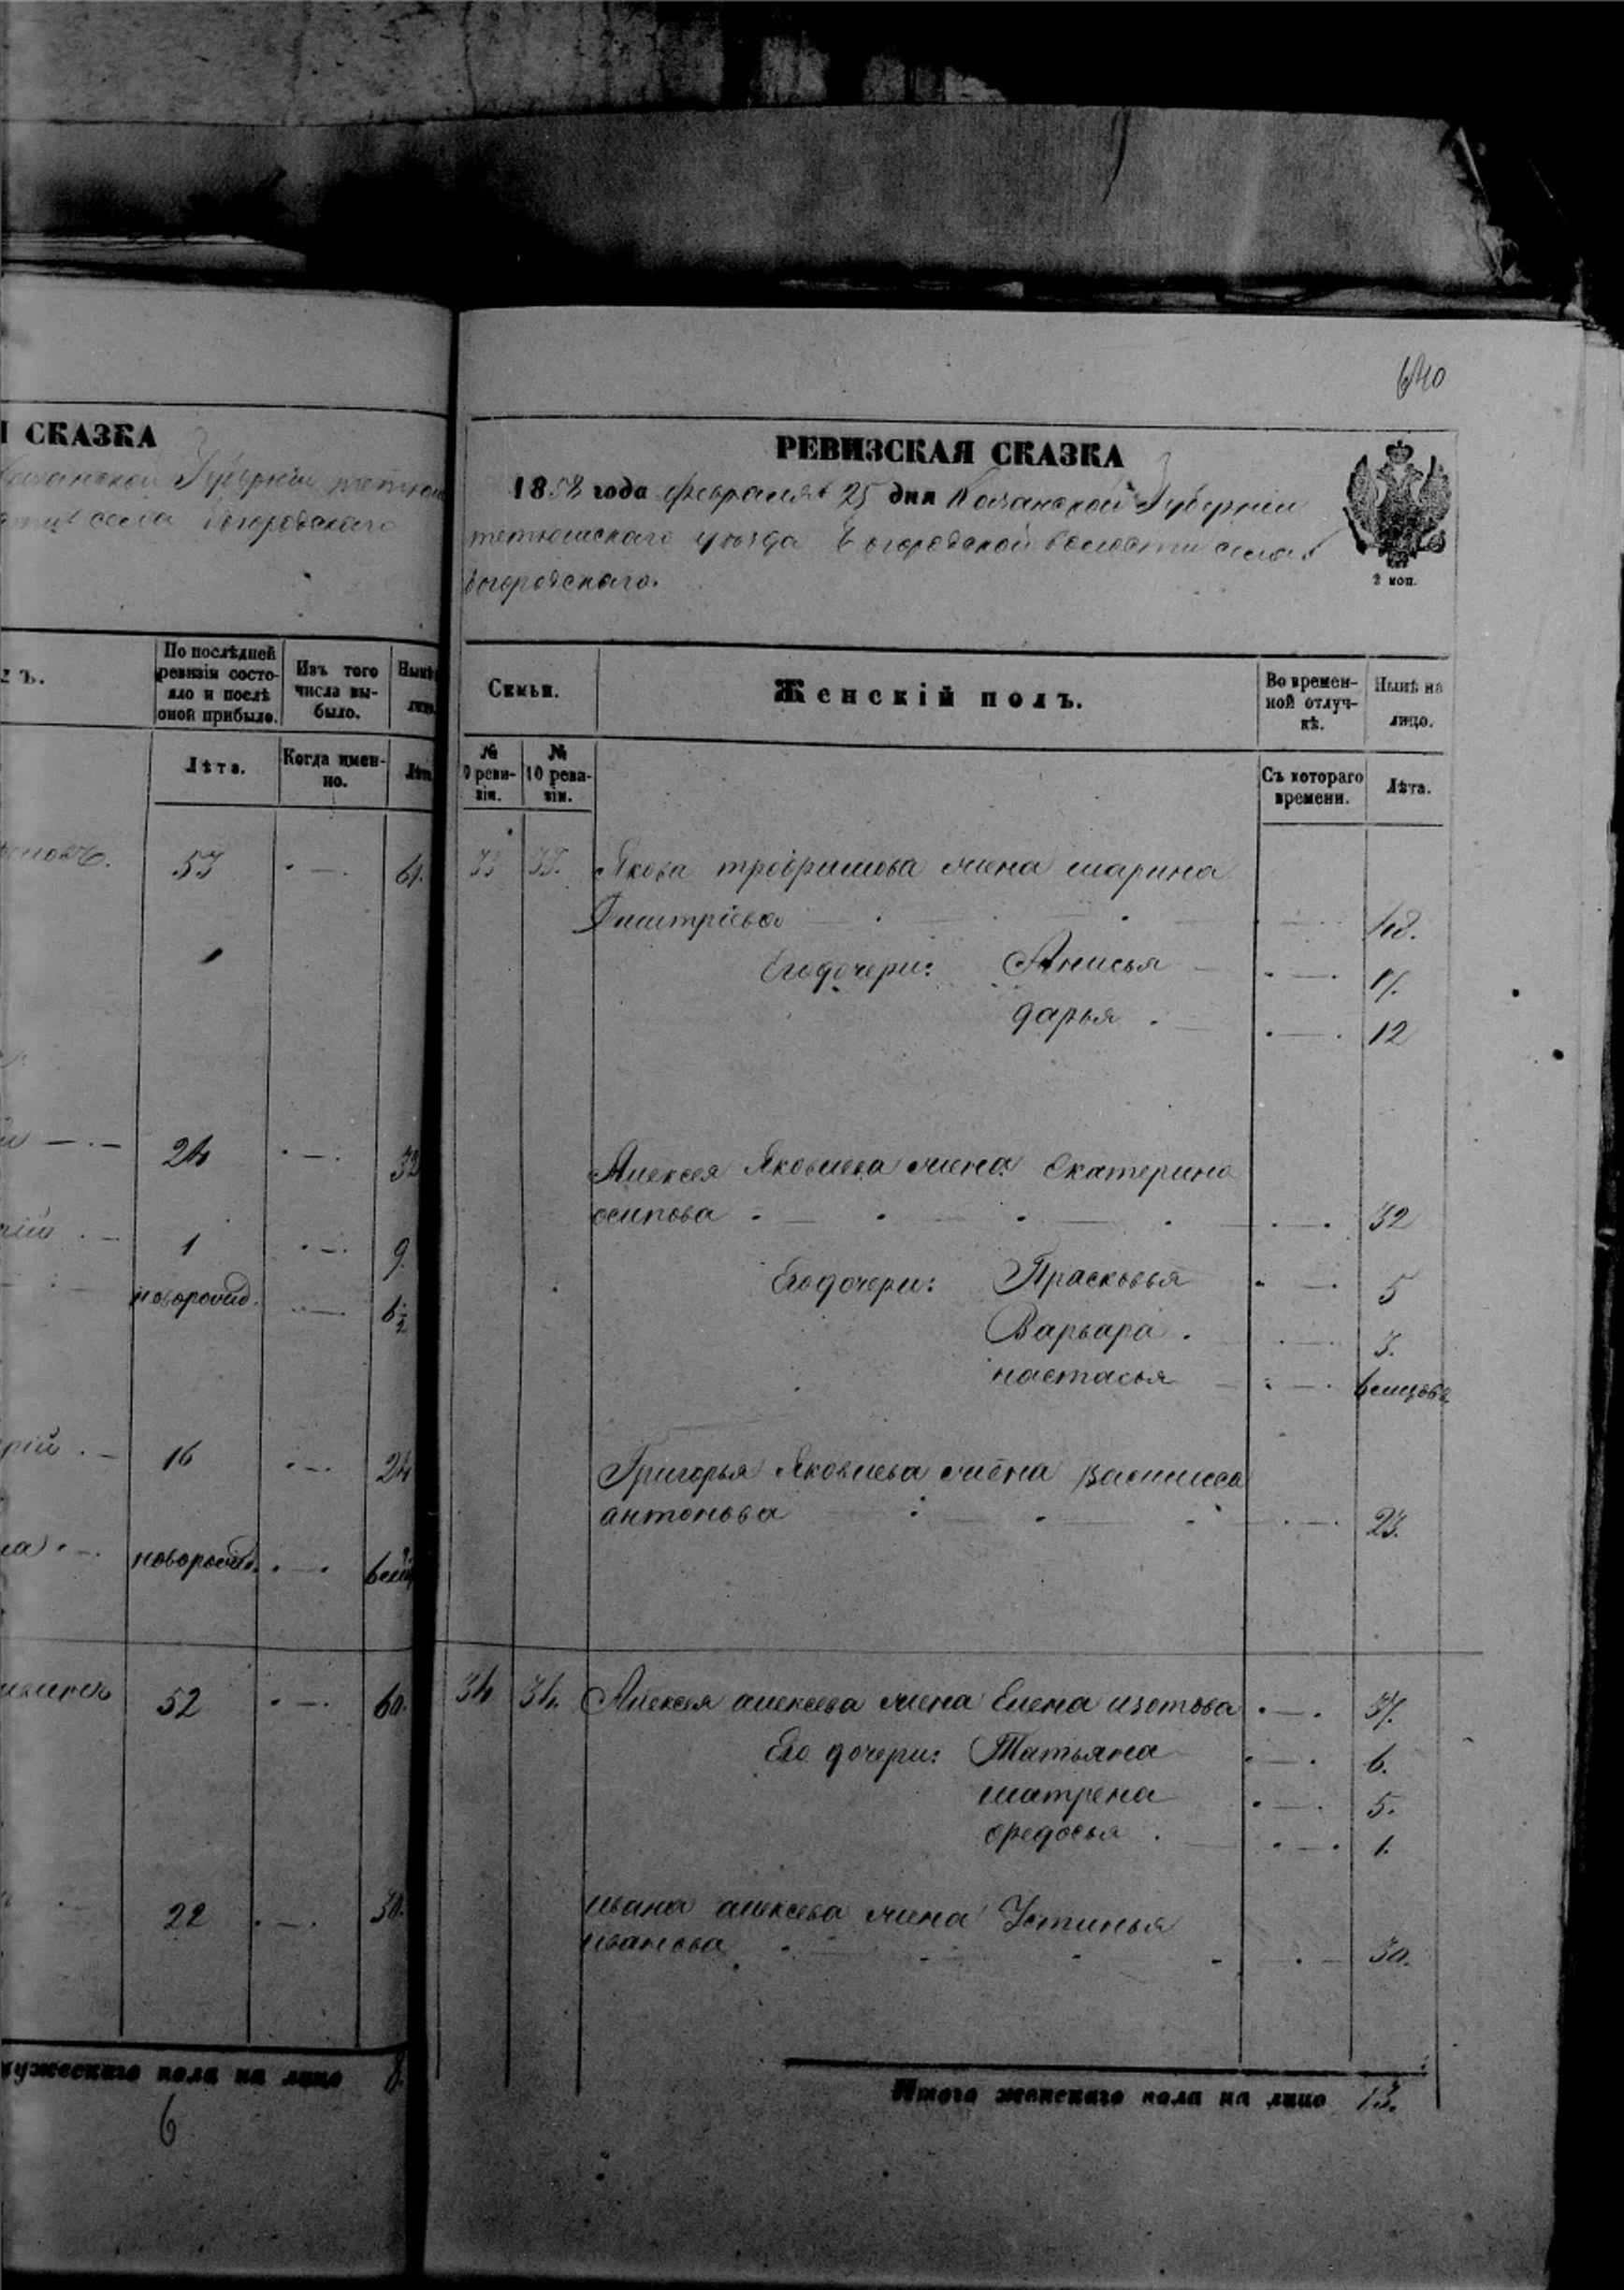 640
СКАЗКА
Казанской Губерніи тетюш
села Богородскаго
По послѣдней ревизіи состояло и послѣ оной прибыло.
Изъ того числа выбыло.
Нынѣ
лицо
Лѣта.
Когда именно.
Лѣта
53 61.
24 32
1 9
новорожд. 6 1/2
16 24
новорожд. 6 мѣ
52 60.
22 30.
мужескаго пола на лицо 8.
6
РЕВИЗСКАЯ СКАЗКА
1858 года февраля 25 дня Казанской Губерніи
тетюшскаго уѣзда Богородской волости села
Богородскаго.
2 коп.
Семьи.
Женскій полъ.
Во временной отлучкѣ.
Нынѣ на лицо.
№ 9 ревизіи.
№ 10 ревизіи.
Съ котораго времени.
Лѣта.
33 33. Якова трофимова жена марина
Дмитріева 48.
Его дочери: Анисья 17.
дарья 12
Алексея Яковлева жена Екатерина
осипова 32
Его дочери: Прасковья 5
Варвара 3.
настасья 6 месцовъ
Григорья Яковлева жена василиса
антонова 23.
34 34. Алексея алексева жена Елена изотова 37.
Его дочери: Татьяна 6.
матрена 5.
федосья 1.
ивана алексева жена Устинья
иванова 30.
Итого женскаго пола на лицо 13.